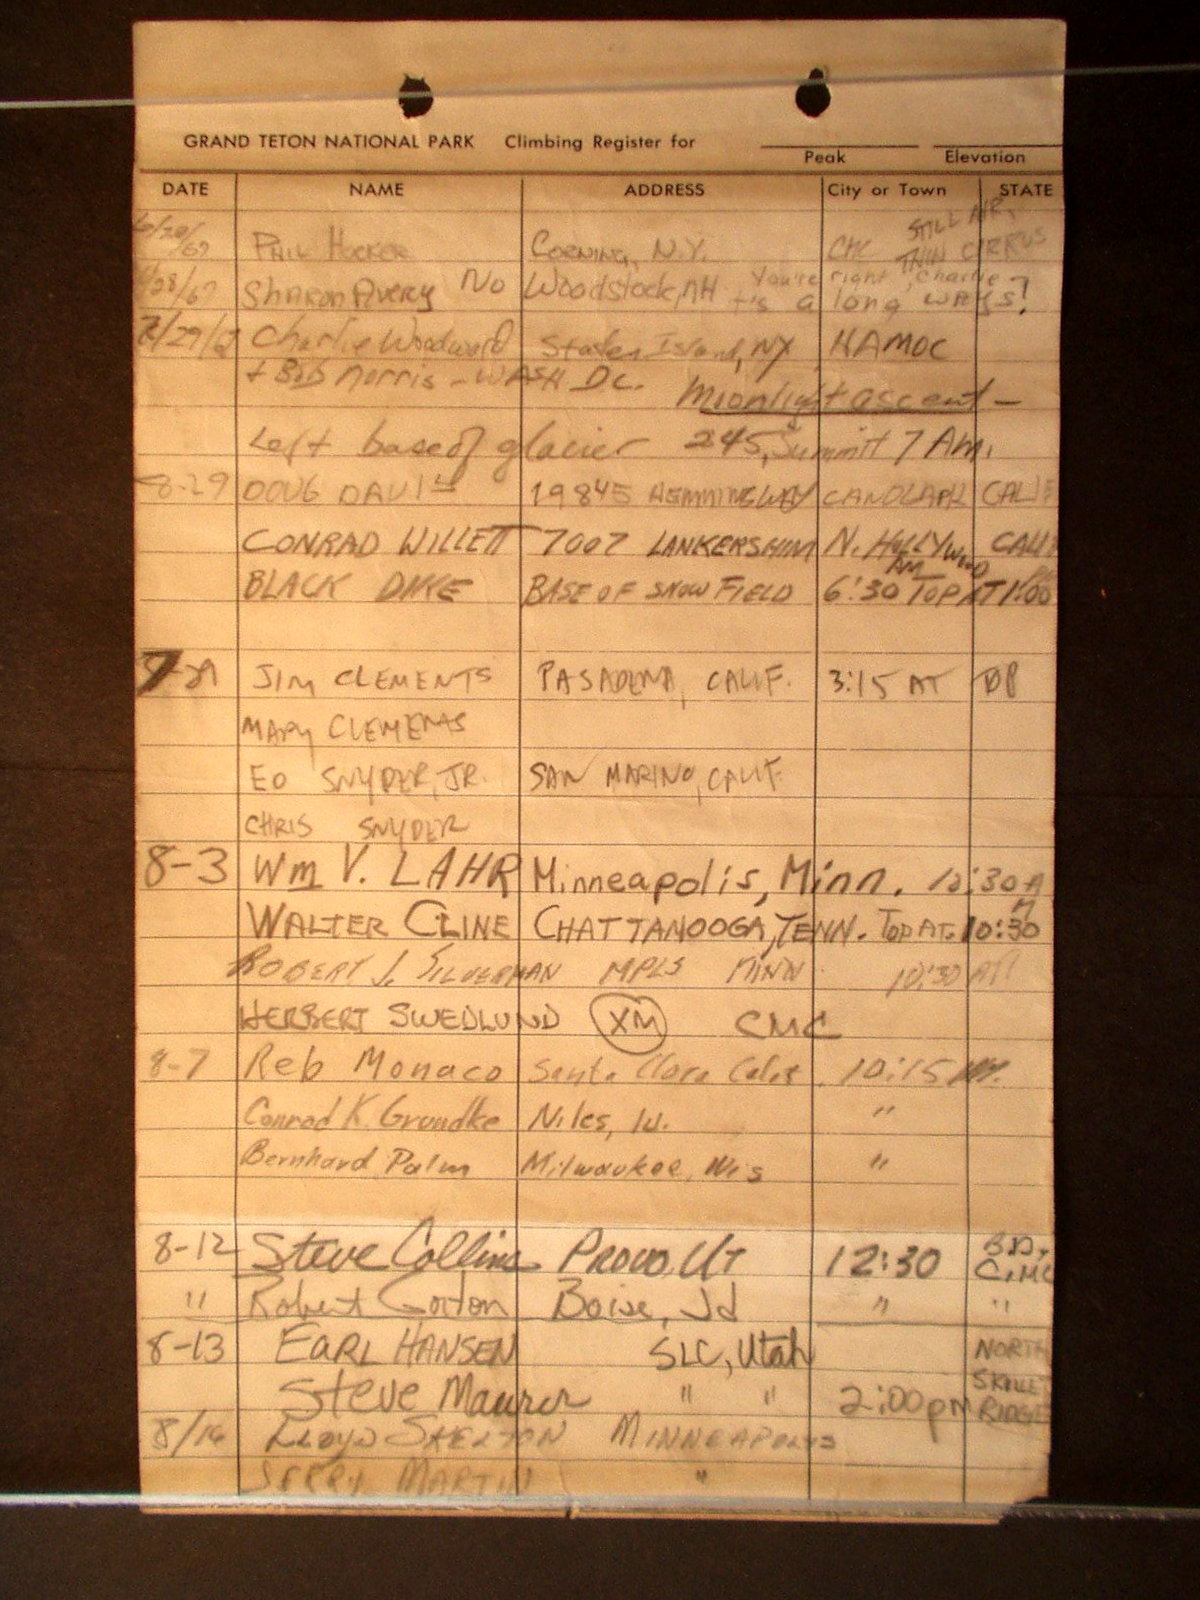 GRAND TETON NATIONAL PARK Climbing Register for
Peak Elevation
DATE NAME ADDRESS City or Town STATE
STILL AIR,
6/28/67 PHIL HOCKER CORNING, N.Y. CMC THIN CIRRUS
You're right, Charlie
/28/67 Sharon Avery No Woodstock, NH it's a long ways!
/29/ Charlie Woodward Staten Island, NY HAMOC
+ Bob Morris - WASH DC. Moonlight ascent -
Left base of glacier 245, Summit 7 AM.
8-29 DOUG DAVIS 19845 HEMMINGWAY CALIF
CONRAD WILLETT 7007 LANKERSHIM N. HOLLYWOOD CALIF
BLACK DIKE BASE OF SNOW FIELD 6:30 AM TOP AT 1:00
JIM CLEMENTS PASADENA, CALIF. 3:15 AT
MARY CLEMENTS
ED SNYDER, JR. SAN MARINO, CALIF.
CHRIS SNYDER
8-3 Wm V. LAHR Minneapolis, Minn. 10:30 AM
WALTER CLINE CHATTANOOGA, TENN. TOP AT. 10:30
ROBERT J. SILVERMAN MPLS MINN 10:30 AM
HERBERT SWEDLUND XM CMC
8-7 Reb Monaco Santa Clara Calif 10:15 AM.
Conrad K. Grundke Niles, Ill. "
Bernhard Palm Milwaukee, Wis "
8-12 Steve Collins PROVO, UT 12:30 B.D. C.MC
" Robert Gorton Boise, Id " "
8-13 EARL HANSEN SLC, Utah NORTH
Steve Maurer " " 2:00 pm SKILLET RIDGE
8/16 LLOYD SKELTON MINNEAPOLIS
JERRY MARTIN "